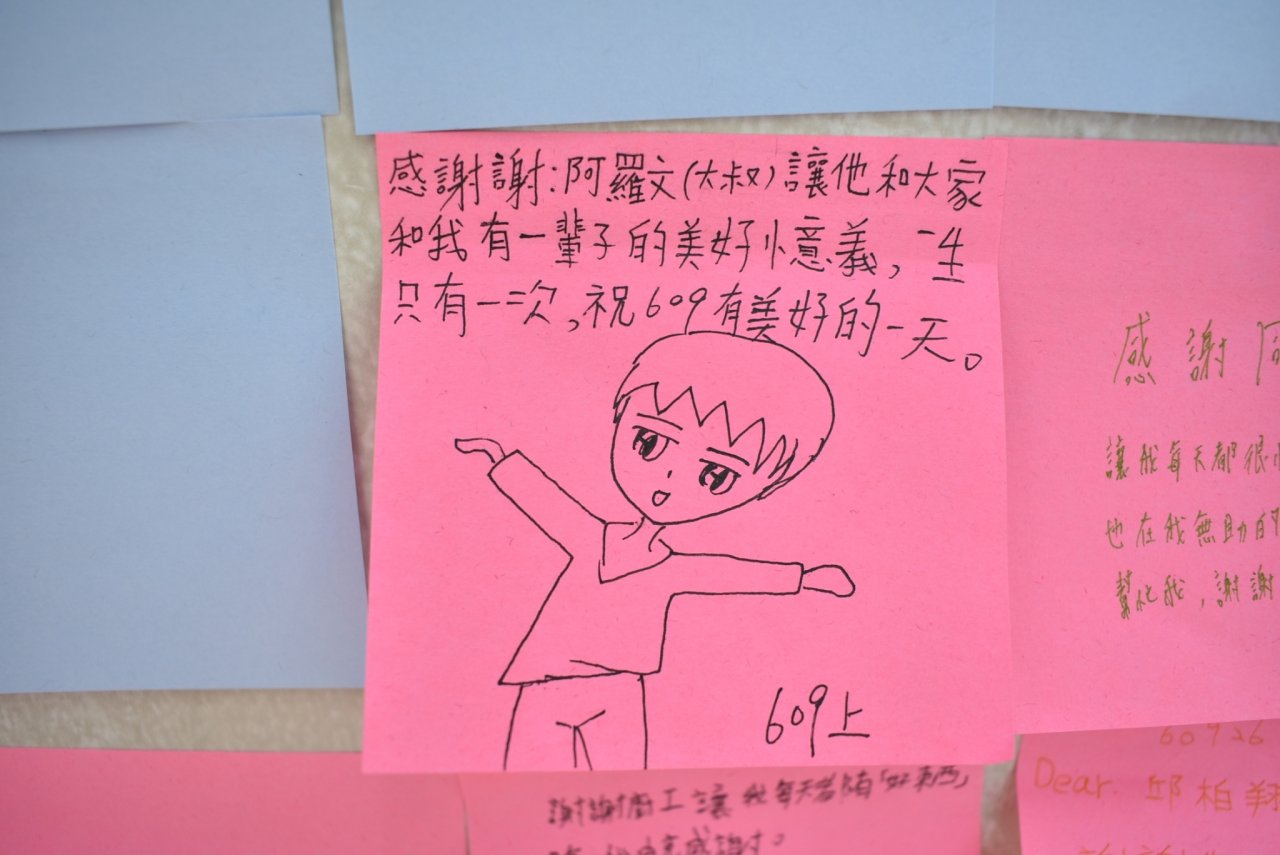 感謝謝:阿羅文(大叔)讓他和大家
和我有一輩子的美好忄意義,一生
只有一次,祝609有美好的一天。
609上
感謝
讓我每天都很
也在我無助的
幫忙我,謝謝
謝謝廚工讓我每天都有「好東西」
感謝。
60926
Dear. 邱柏翔